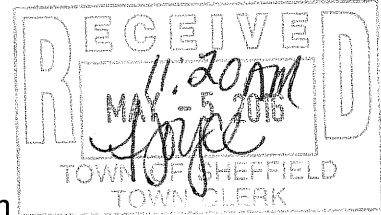 RECEIVED
11:20 AM
MAY - 5 2016
TOWN OF SHEFFIELD
TOWN CLERK
n